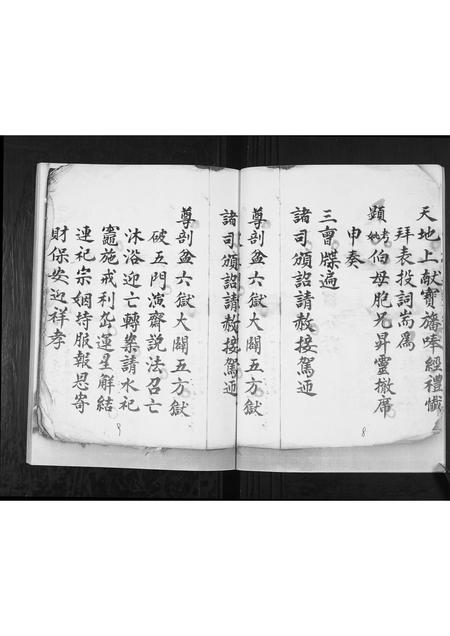 天地上献寶旛啅經禮懺
拜表投詞耑為
顕考妣伯母胞兄昇靈撤席
申奏
三會牒遍
諸司頒詔請赦接駕迊
尊剖盆六獄大闢五方獄
8
諸司頒詔請赦接駕迊
尊剖盆六獄大闢五方獄
破五門演齋説法召亡
沐浴迎亡轉案請水祀
竈施戒利㷊運星解結
連祀宗姻持服報恩寄
財保安迎祥孝
9